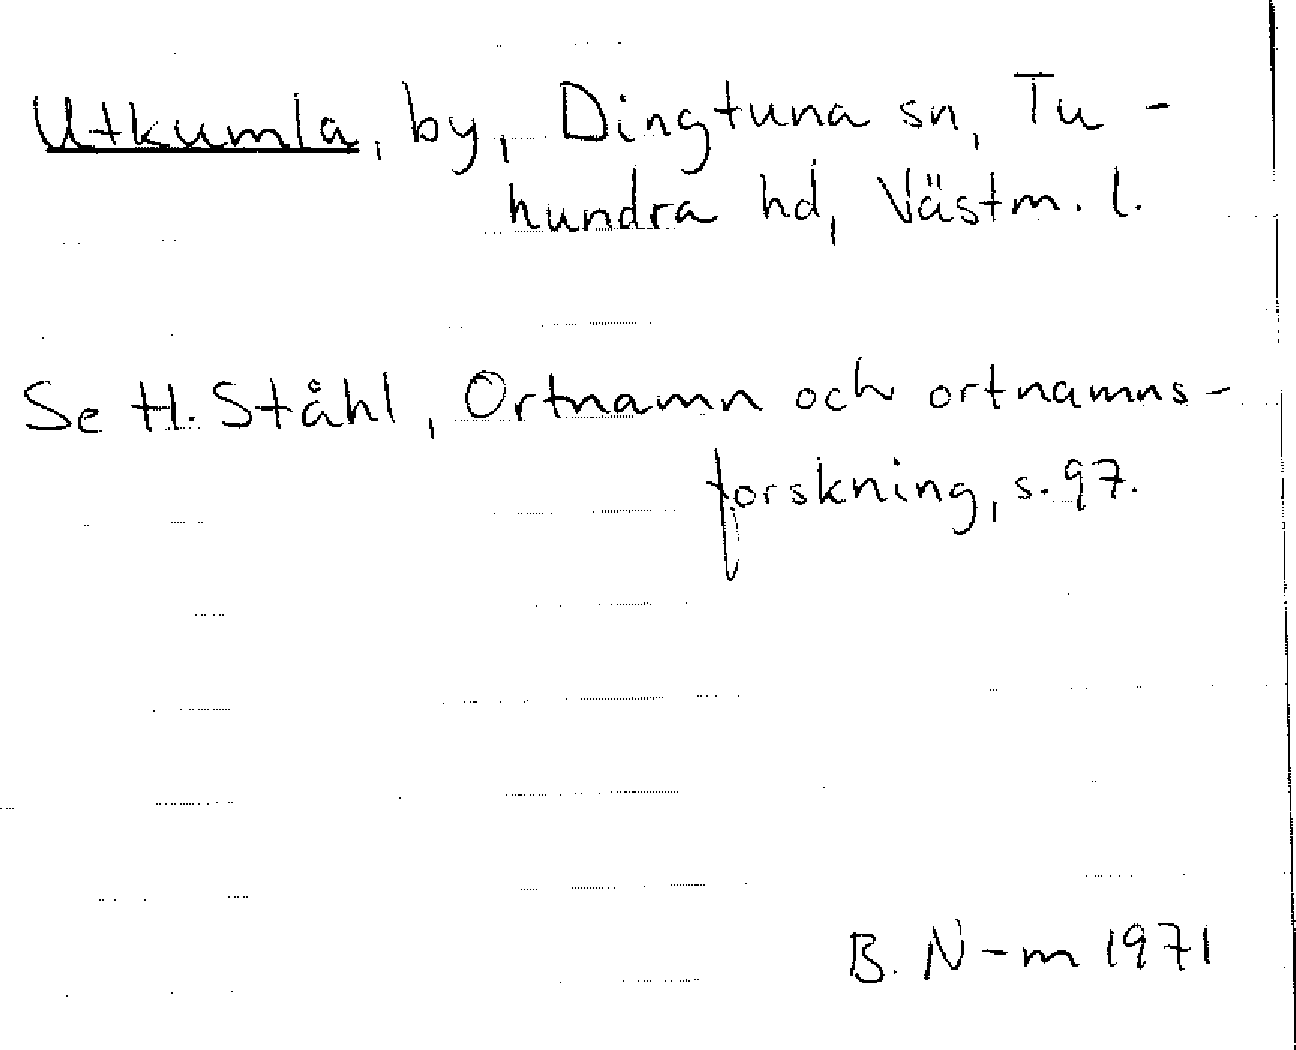 Utkumla, by, Dingtuna sn, Tu-
hundra hd, Västm. l.
Se H. Ståhl, Ortnamn och ortnamns-
forskning, s. 97.
B. N-m 1971